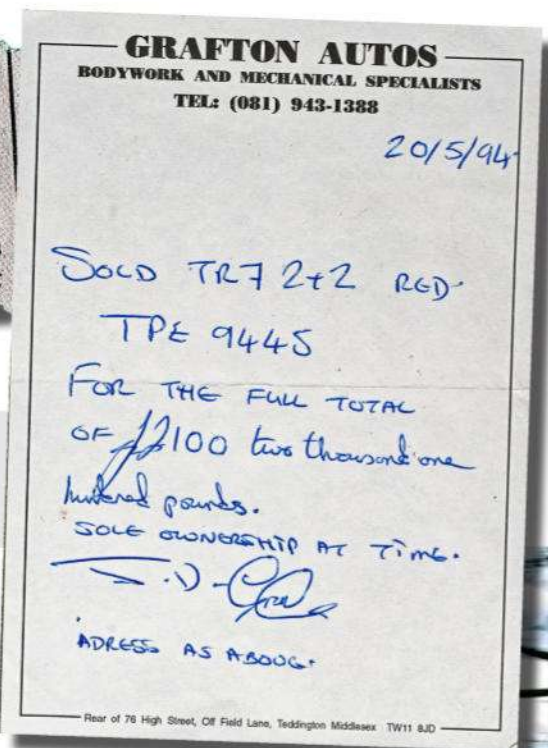 GRAFTON AUTOS
BODYWORK AND MECHANICAL SPECIALISTS
TEL: (081) 943-1388
20/5/94
SOLD TR7 2+2 RED
TPE 944S
FOR THE FULL TOTAL
OF £2100 two thousand one
hundred pounds.
SOLE OWNERSHIP AT TIME.
ADRESS AS ABOVE.
Rear of 76 High Street, Off Field Lane, Teddington Middlesex TW11 8JD